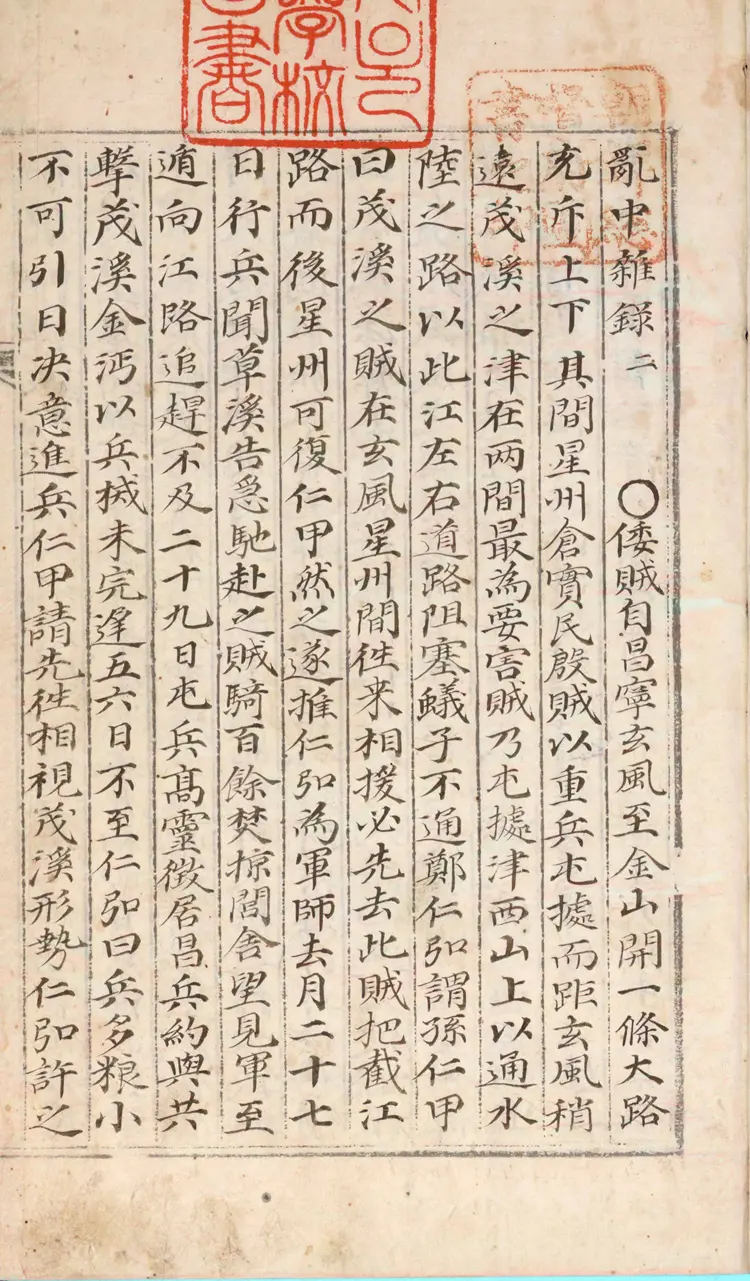 亂中雜録 二 ○倭賊自昌寧玄風至金山開一條大路
充斥上下其間星州倉實民殷賊以重兵屯據而距玄風稍
遠茂溪之津在两間最為要害賊乃屯據津西山上以通水
陸之路以此江左右道路阻塞蟻子不通鄭仁弘謂孫仁甲
曰茂溪之賊在玄風星州間徃来相援必先去此賊把截江
路而後星州可復仁甲然之遂推仁弘為軍師去月二十七
日行兵聞草溪告急馳赴之賊騎百餘焚掠閭舎望見軍至
遁向江路追趕不及二十九日屯兵髙靈徴居昌兵約與共
擊茂溪金沔以兵械未完逢五六日不至仁弘曰兵多粮小
不可引日决意進兵仁甲請先徃相視茂溪形勢仁弘許之
書
學校